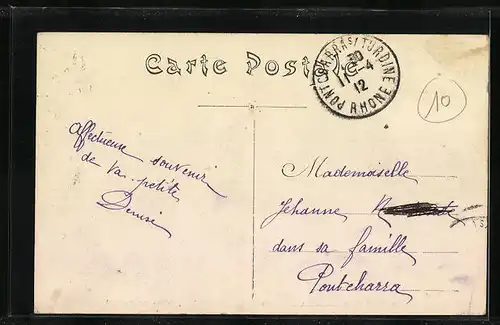 Carte Postale
PONTCHARRAS/TURDINE
RHONE
30
11-4
12
10
Affectueux souvenir
de ta petite
Denise
Mademoiselle
Jehanne
dans sa famille
Pontcharra